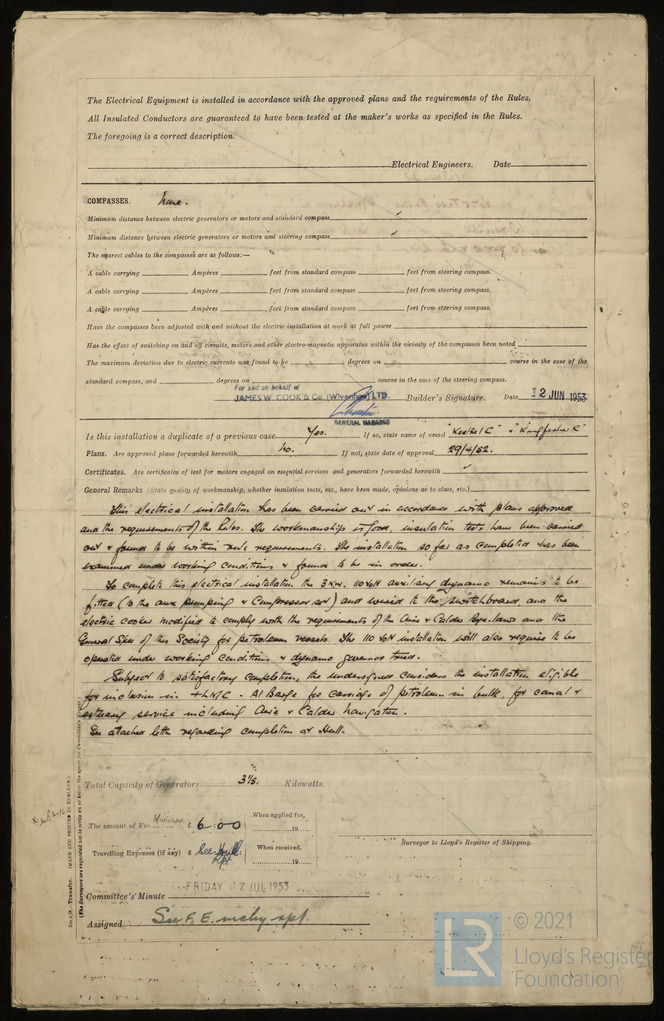 The Electrical Equipment is installed in accordance with the approved plans and the requirements of the Rules.
All Insulated Conductors are guaranteed to have been tested at the maker's works as specified in the Rules.
The foregoing is a correct description.
Electrical Engineers. Date
COMPASSES. None.
Minimum distance between electric generators or motors and standard compass
Minimum distance between electric generators or motors and steering compass
The nearest cables to the compasses are as follows:—
A cable carrying Ampères feet from standard compass feet from steering compass.
A cable carrying Ampères feet from standard compass feet from steering compass.
A cable carrying Ampères feet from standard compass feet from steering compass.
Have the compasses been adjusted with and without the electric installation at work at full power
Has the effect of switching on and off circuits, motors and other electro-magnetic apparatus within the vicinity of the compasses been noted
The maximum deviation due to electric currents was found to be degrees on course in the case of the
standard compass, and degrees on course in the case of the steering compass.
For and on behalf of
JAMES W. COOK & Co. (Wivenhoe) LTD. Builder's Signature. Date 12 JUN 1953
GENERAL MANAGER
Is this installation a duplicate of a previous case Yes. If so, state name of vessel "Kestrel C" & "Kingfisher C"
Plans. Are approved plans forwarded herewith No. If not, state date of approval 29/4/52.
Certificates. Are certificates of test for motors engaged on essential services and generators forwarded herewith ✓
General Remarks (State quality of workmanship, whether insulation tests, etc., have been made, opinions as to class, etc.)
This electrical installation has been carried out in accordance with plans approved
and the requirements of the Rules. The workmanship is good, insulation tests have been carried
out & found to be within rule requirements. The installation so far as completed has been
examined under working conditions & found to be in order.
To complete this electrical installation the 3 KW. 110 volt auxiliary dynamo remains to be
fitted (to the aux pumping & Compressor set) and wired to the switchboard and the
electric cooker modified to comply with the requirements of the Aire & Calder Bye-laws and the
General Spec of this Society for petroleum vessels. The 110 volt installation will also require to be
operated under working conditions & dynamo governor tried.
Subject to satisfactory completion, the undersigned considers the installation eligible
for inclusion in + LMC. A1 Barge for carriage of petroleum in bulk, for canal &
estuary service including Aire & Calder navigation.
See attached letter regarding completion at Hull.
Total Capacity of Generators 3½ Kilowatts.
The amount of Fee £ 6-0-0 When applied for, 19
Travelling Expenses (if any) £ See Hull Rpt When received. 19
Surveyor to Lloyd's Register of Shipping.
Committee's Minute FRIDAY 17 JUL 1953
Assigned See F.E. mchy rpt.
Transfer. (MADE AND PRINTED IN ENGLAND.)
(The Surveyors are requested not to write on or below the space for Committee's Minute.)
© 2021
LR
Lloyd's Register
Foundation